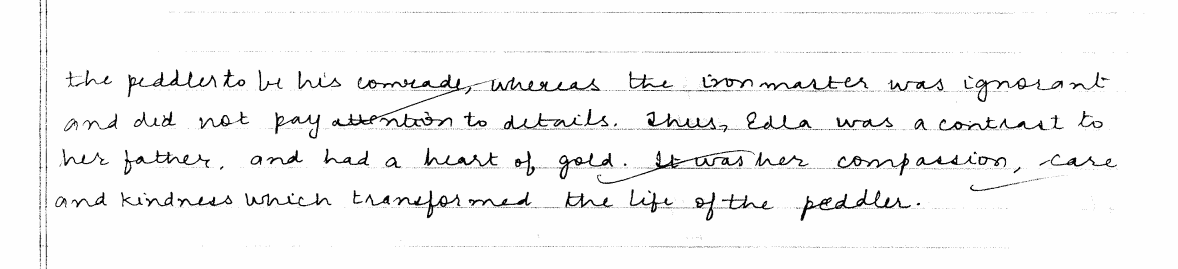 the peddler to be his comrade, whereas the ironmaster was ignorant
and did not pay attention to details. Thus, Edla was a contrast to
her father, and had a heart of gold. It was her compassion, care
and kindness which transformed the life of the peddler.